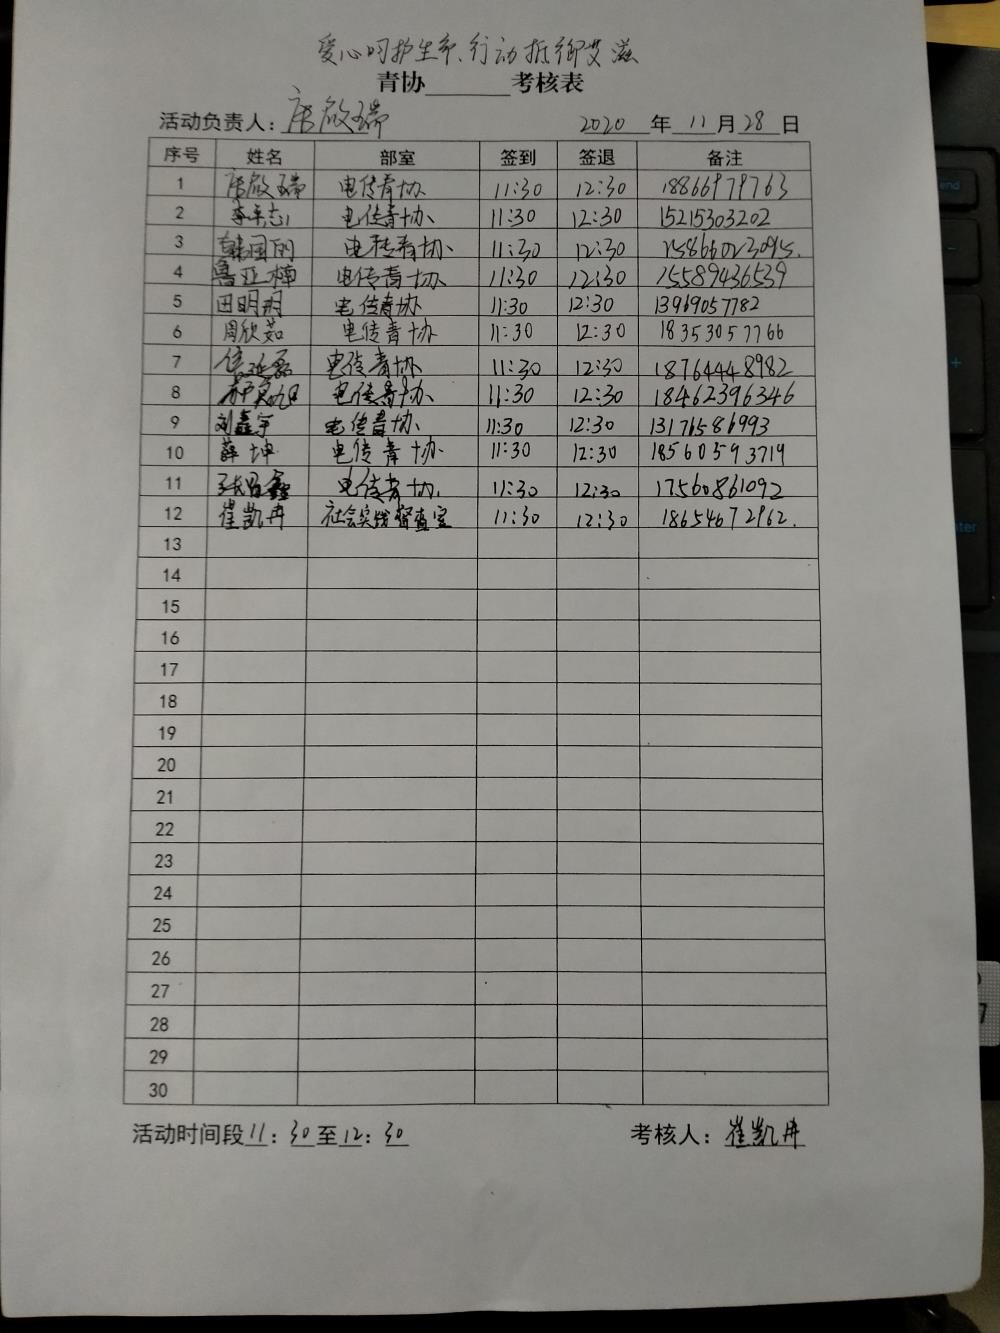 爱心呵护生命、行动抵御艾滋
青协______考核表
活动负责人：唐啟瑞 2020 年 11 月 28 日
序号 姓名 部室 签到 签退 备注
1 唐啟瑞 电传青协 11:30 12:30 18866979763
2 电传青协 11:30 12:30 15215303202
3 韩国 电传青协 11:30 12:30 15866023095
4 鲁亚楠 电传青协 11:30 12:30 15589436539
5 田明玥 电传青协 11:30 12:30 13969057782
6 周欣茹 电传青协 11:30 12:30 18353057766
7 电传青协 11:30 12:30 18764448982
8 电传青协 11:30 12:30 18462396346
9 刘鑫宇 电传青协 11:30 12:30 13176586993
10 薛坤 电传青协 11:30 12:30 18560593719
11 电传青协 11:30 12:30 17560861092
12 崔凯冉 社会实践督查室 11:30 12:30 18654672962.
13
14
15
16
17
18
19
20
21
22
23
24
25
26
27
28
29
30
活动时间段 11：30 至 12：30 考核人：崔凯冉
end